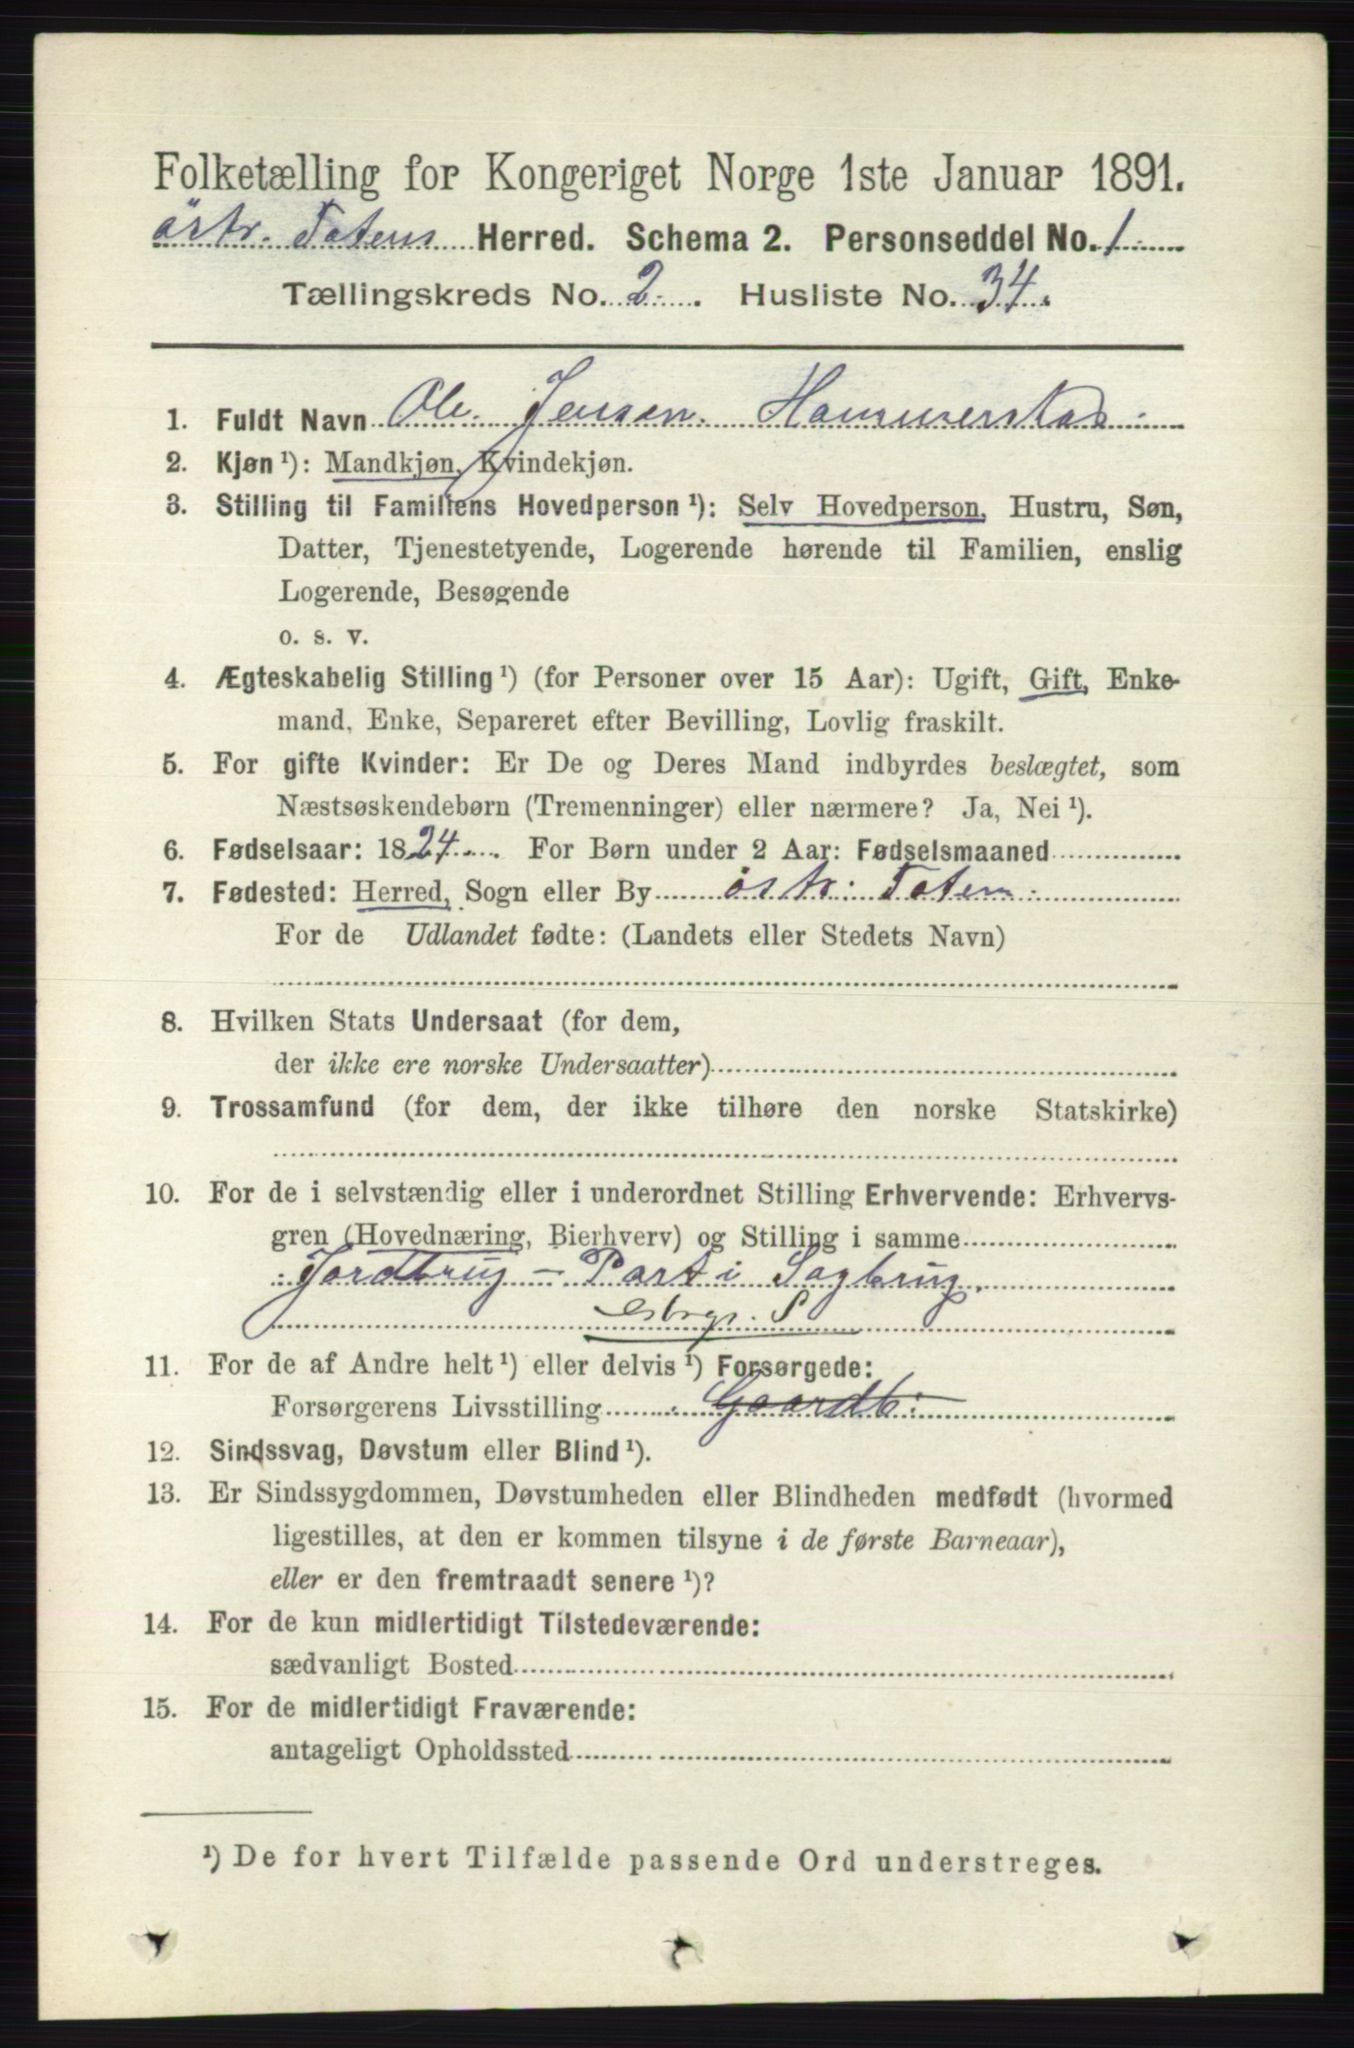 Folketælling for Kongeriget Norge 1ste Januar 1891.
östr. Totens Herred. Schema 2. Personseddel No. 1
Tællingskreds No. 2. Husliste No. 34.
1. Fuldt Navn Ole Jensen Hammerstad
2. Kjøn ¹): Mandkjøn, Kvindekjøn.
3. Stilling til Familiens Hovedperson ¹): Selv Hovedperson, Hustru, Søn,
Datter, Tjenestetyende, Logerende hørende til Familien, enslig
Logerende, Besøgende
o. s. v.
4. Ægteskabelig Stilling ¹) (for Personer over 15 Aar): Ugift, Gift, Enke-
mand, Enke, Separeret efter Bevilling, Lovlig fraskilt.
5. For gifte Kvinder: Er De og Deres Mand indbyrdes beslægtet, som
Næstsøskendebørn (Tremenninger) eller nærmere? Ja, Nei ¹).
6. Fødselsaar: 1824. For Børn under 2 Aar: Fødselsmaaned
7. Fødested: Herred, Sogn eller By östr: Toten:
For de Udlandet fødte: (Landets eller Stedets Navn)
8. Hvilken Stats Undersaat (for dem,
der ikke ere norske Undersaatter)
9. Trossamfund (for dem, der ikke tilhøre den norske Statskirke)
10. For de i selvstændig eller i underordnet Stilling Erhvervende: Erhvervs-
gren (Hovednæring, Bierhverv) og Stilling i samme
Jordbrug – Part i Sagbrug.
S
11. For de af Andre helt ¹) eller delvis ¹) Forsørgede:
Forsørgerens Livsstilling Gaardb:
12. Sindssvag, Døvstum eller Blind ¹).
13. Er Sindssygdommen, Døvstumheden eller Blindheden medfødt (hvormed
ligestilles, at den er kommen tilsyne i de første Barneaar),
eller er den fremtraadt senere ¹)?
14. For de kun midlertidigt Tilstedeværende:
sædvanligt Bosted
15. For de midlertidigt Fraværende:
antageligt Opholdssted
¹) De for hvert Tilfælde passende Ord understreges.